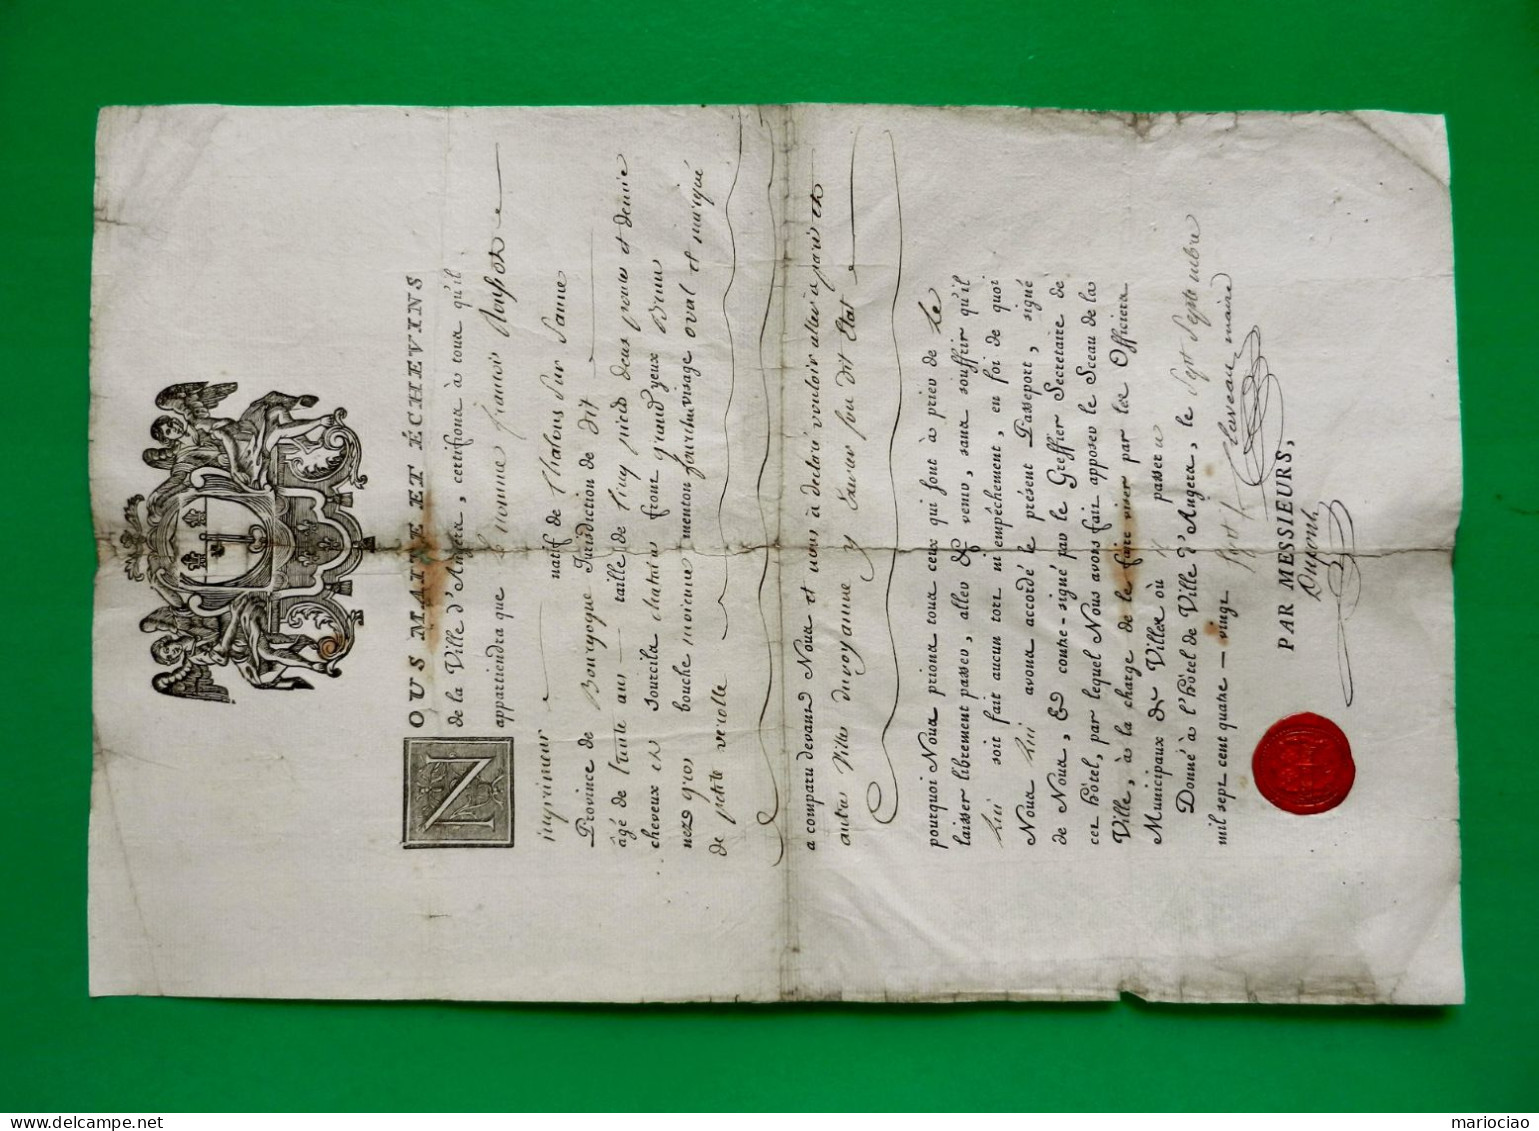 NOUS MAIRE ET ÉCHEVINS
de la Ville d'Angers, certifions à tous qu'il
appartiendra que Le nommé françois
imprimeur natif de Chalons sur Saune
Province de Bourgogne Jurisdiction de dit
âgé de trente ans taille de Cinq pieds deux pouces et demie
cheveux et sourcils chatins front grand yeux Brun
nez gros bouche moienne menton fourchu visage oval et marqué
de petite verolle
a comparu devant Nous et nous à declaré vouloir aller a paris et
autres Villes du royaume y Exercer son dit Etat
pourquoi Nous prions tous ceux qui sont à prier de Le
laisser librement passer, aller & venir, sans souffrir qu'il
Lui soit fait aucun tort ni empêchement, en foi de quoi
Nous Lui avons accordé le présent Passeport, signé
de Nous, & contre-signé par le Greffier Secretaire de
cet hôtel, par lequel Nous avons fait apposer le Sceau de la
Ville, à la charge de le faire viser par les Officiers
Municipaux des Villes où il passera
Donné à l'hôtel de Ville d'Angers, le Sept Septembre
mil sept cent quatre-vingt Sept
Claveau maire
PAR MESSIEURS,
Dupont
mariociao